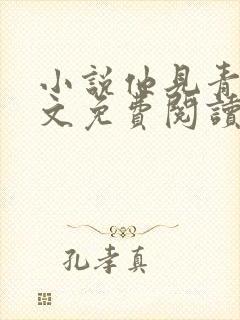 小說他見青
文免費閱讀
孔孝真